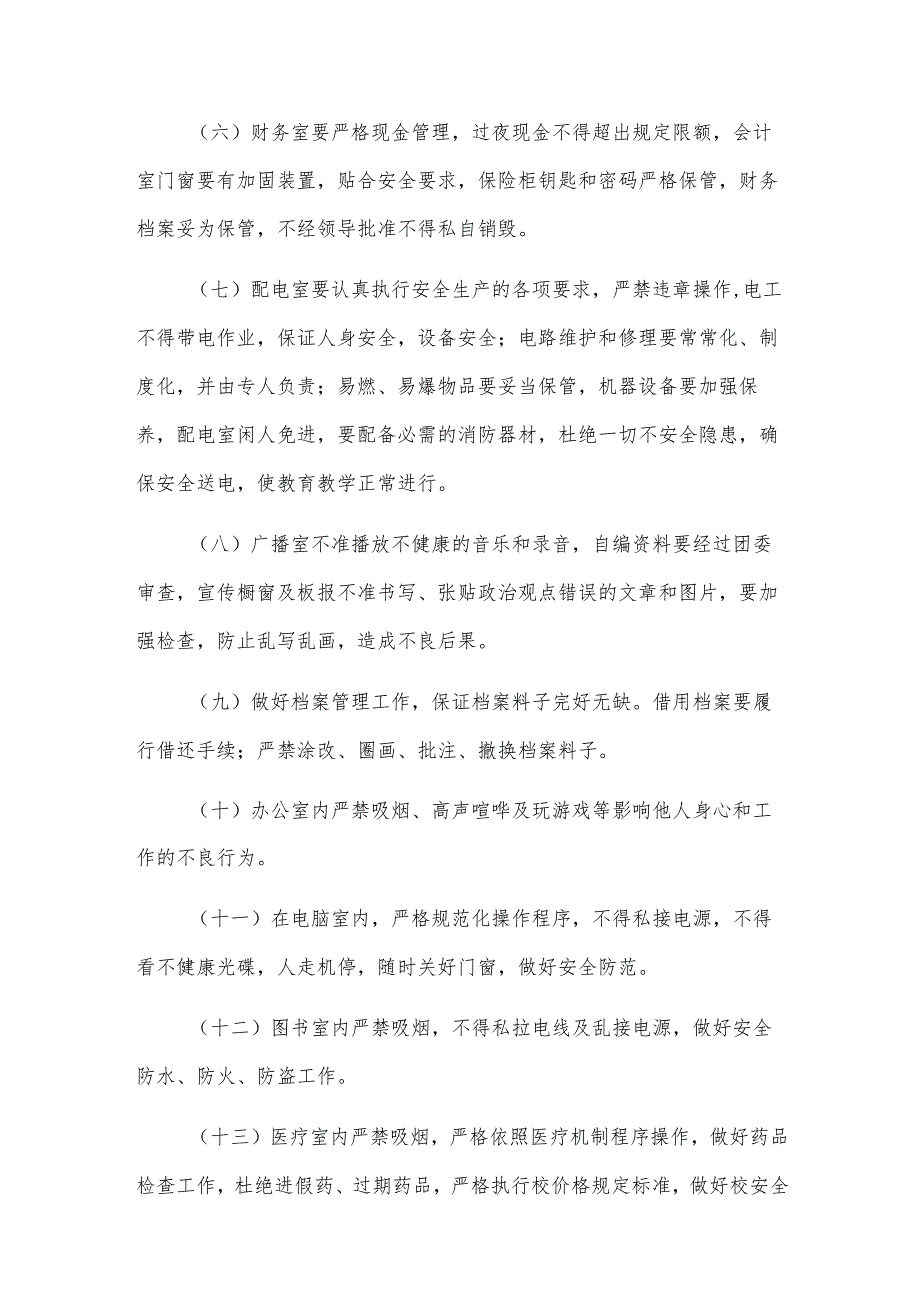 （六）财务室要严格现金管理，过夜现金不得超出规定限额，会计
室门窗要有加固装置，贴合安全要求，保险柜钥匙和密码严格保管，财务
档案妥为保管，不经领导批准不得私自销毁。
（七）配电室要认真执行安全生产的各项要求，严禁违章操作,电工
不得带电作业，保证人身安全，设备安全；电路维护和修理要常常化、制
度化，并由专人负责；易燃、易爆物品要妥当保管，机器设备要加强保
养，配电室闲人免进，要配备必需的消防器材，杜绝一切不安全隐患，确
保安全送电，使教育教学正常进行。
（八）广播室不准播放不健康的音乐和录音，自编资料要经过团委
审查，宣传橱窗及板报不准书写、张贴政治观点错误的文章和图片，要加
强检查，防止乱写乱画，造成不良后果。
（九）做好档案管理工作，保证档案料子完好无缺。借用档案要履
行借还手续；严禁涂改、圈画、批注、撤换档案料子。
（十）办公室内严禁吸烟、高声喧哗及玩游戏等影响他人身心和工
作的不良行为。
（十一）在电脑室内，严格规范化操作程序，不得私接电源，不得
看不健康光碟，人走机停，随时关好门窗，做好安全防范。
（十二）图书室内严禁吸烟，不得私拉电线及乱接电源，做好安全
防水、防火、防盗工作。
（十三）医疗室内严禁吸烟，严格依照医疗机制程序操作，做好药品
检查工作，杜绝进假药、过期药品，严格执行校价格规定标准，做好校安全